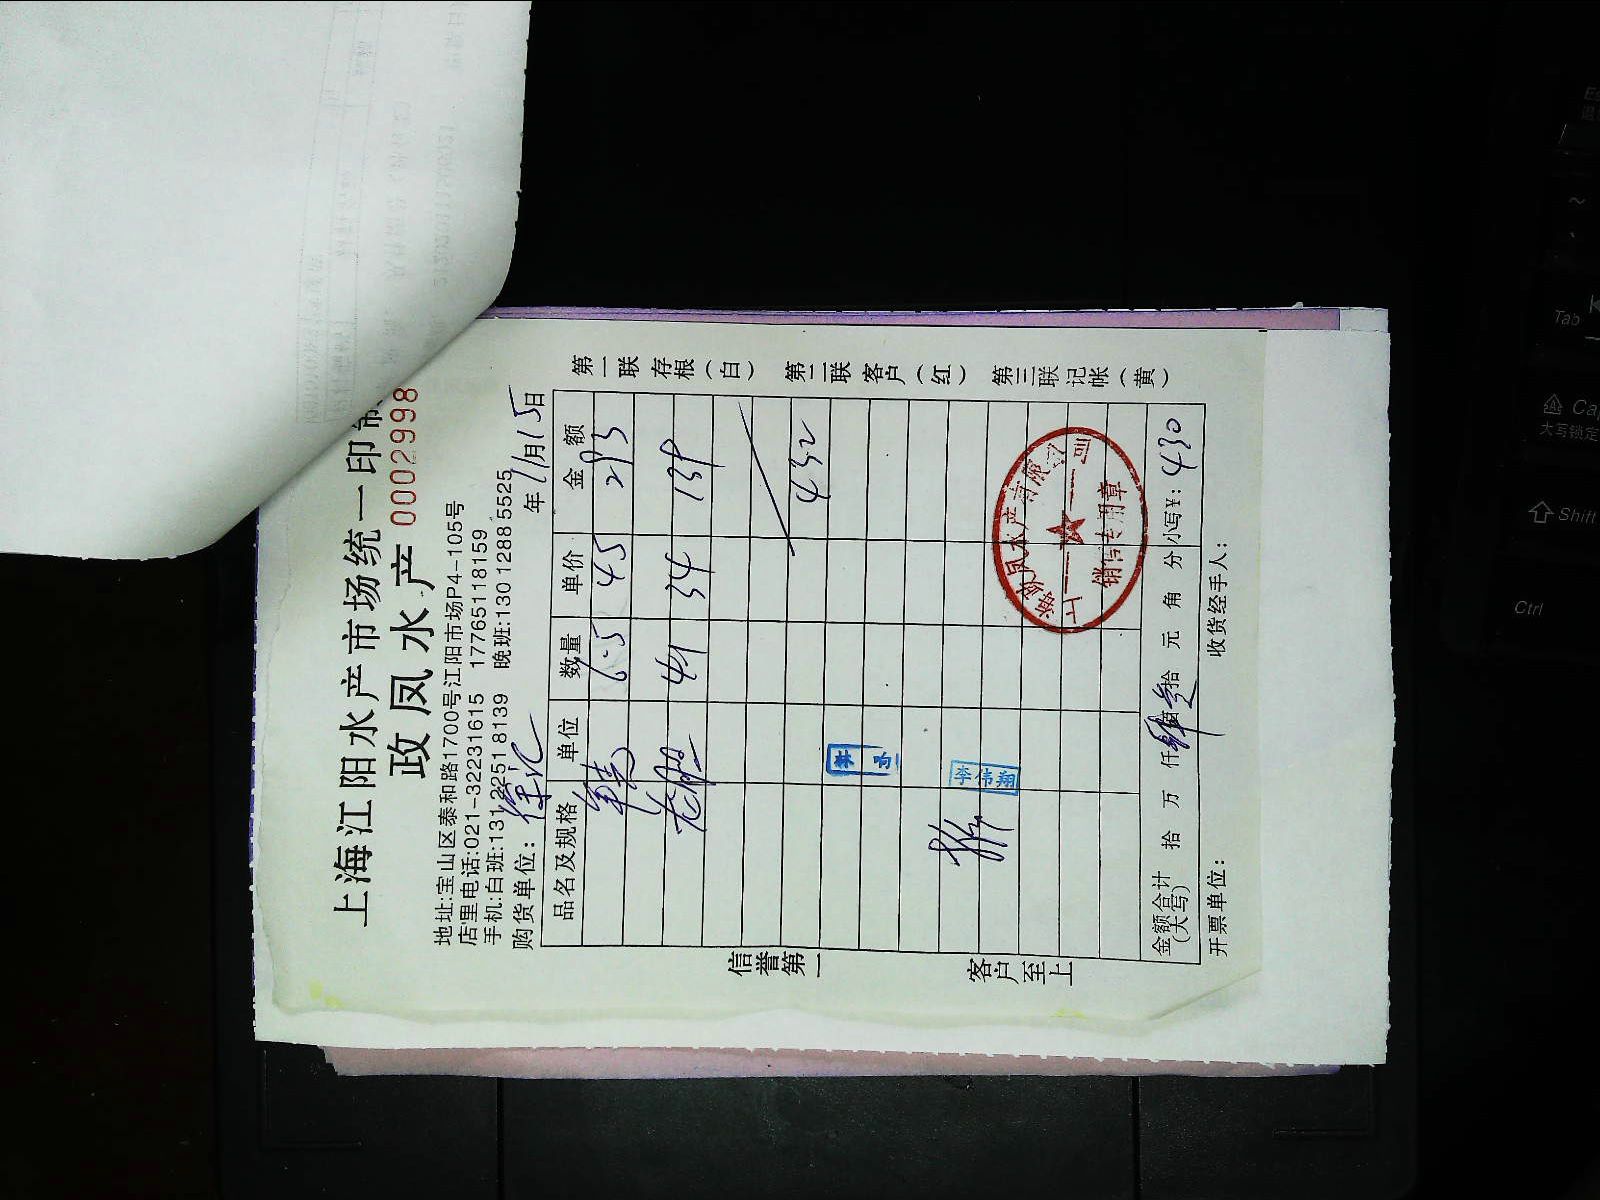 上海江阳水产市场统一印制
政凤水产 0002998
地址:宝山区泰和路1700号江阳市场P4-105号
店里电话:021-32231615 17765118159
手机:白班:131 2251 8139 晚班:130 1288 5525
购货单位: 徐记 年 11月15日
品名及规格 单位 数量 单价 金额
6.5 45 293
龙胆 41 34 139
432
李伟翔
上海政凤水产有限公司
销售专用章
金额合计(大写) 拾 万 仟 佰 拾 元 角 分 小写¥: 430
开票单位: 收货经手人:
信誉第一 客户至上
第一联存根(白) 第二联客户(红) 第三联记帐(黄)
Tab
Cap
大写锁定
Shift
Ctrl